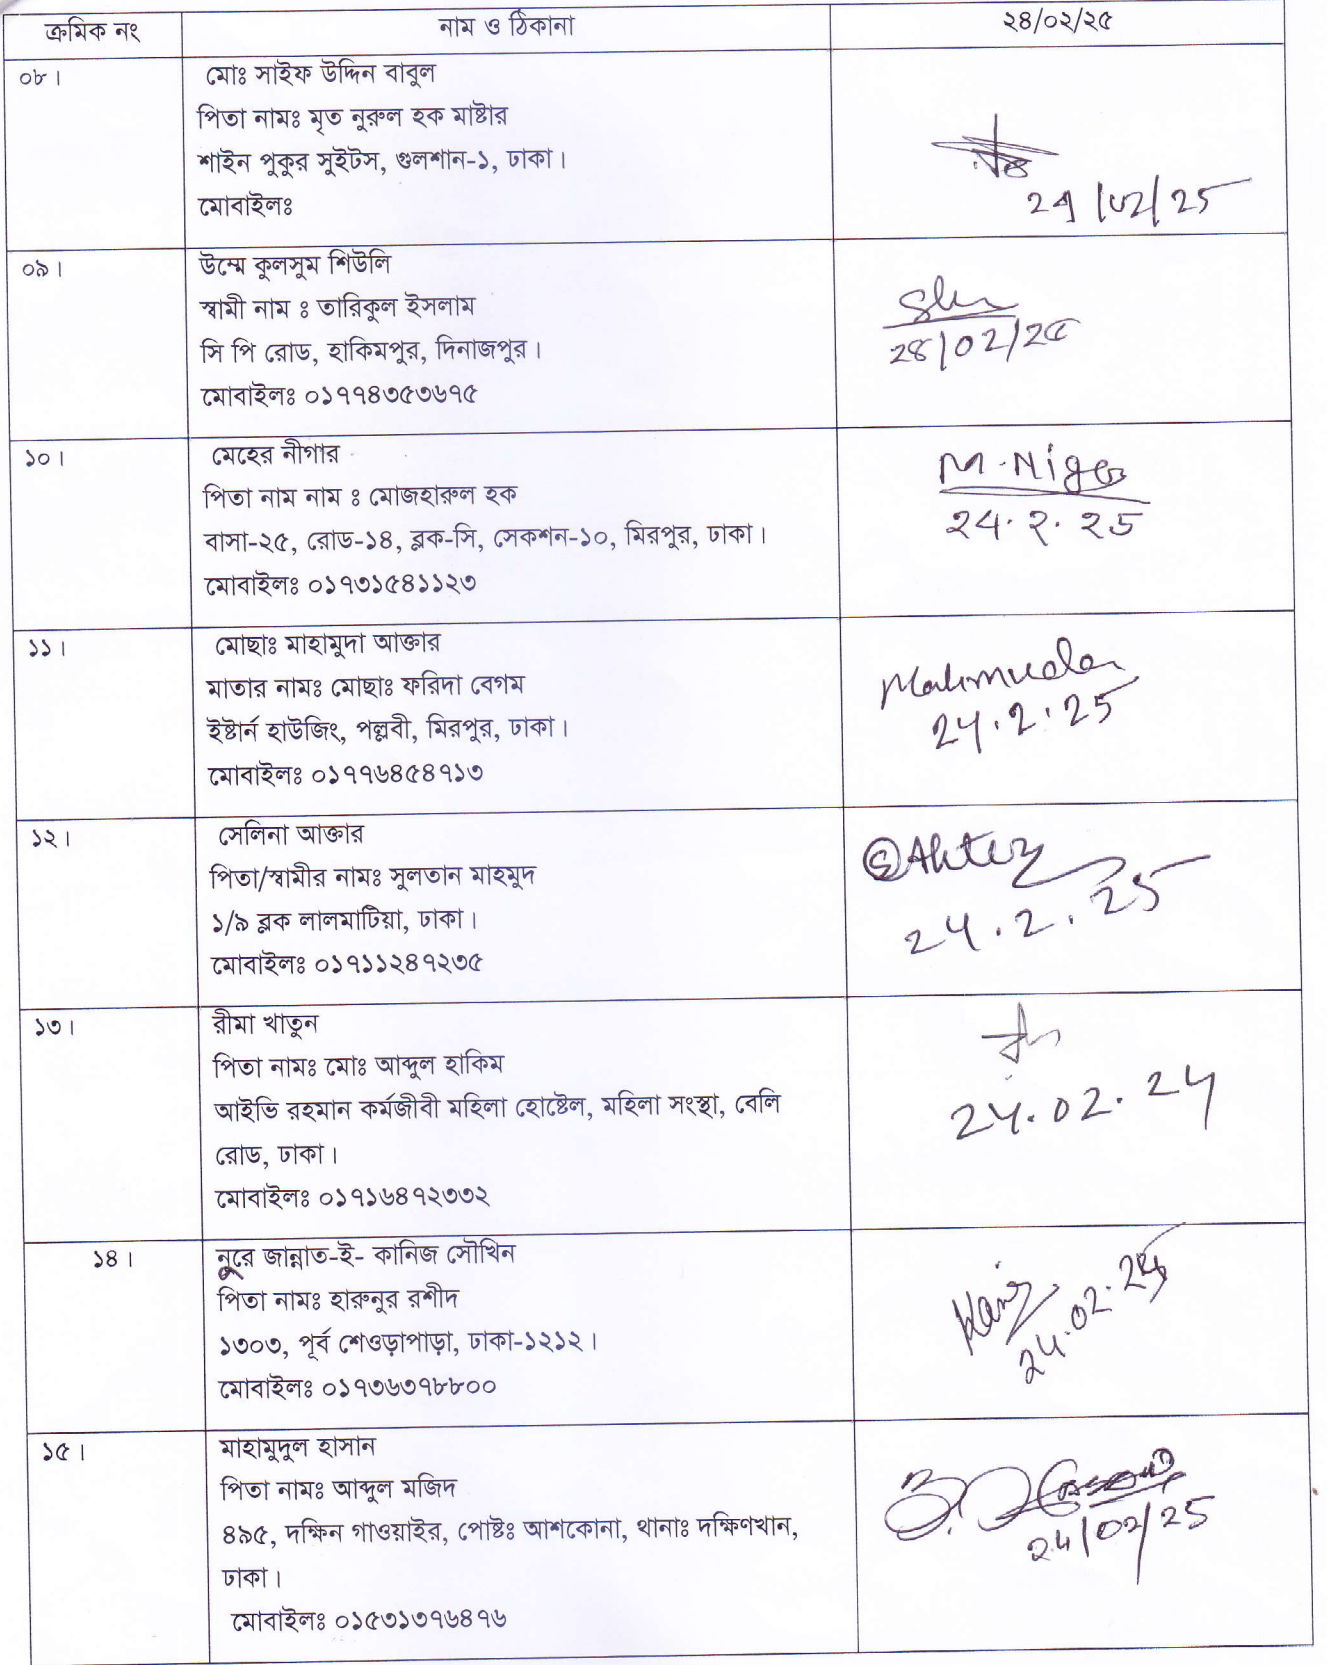 ক্রমিক নং	নাম ও ঠিকানা	২৪/০২/২৫
০৮।
মোঃ সাইফ উদ্দিন বাবুল
পিতা নামঃ মৃত নুরুল হক মাষ্টার
শাইন পুকুর সুইটস, গুলশান-১, ঢাকা।
মোবাইলঃ
24/02/25
০৯।
উম্মে কুলসুম শিউলি
স্বামী নাম ঃ তারিকুল ইসলাম
সি পি রোড, হাকিমপুর, দিনাজপুর।
মোবাইলঃ ০১৭৭৪৩৫৩৬৭৫
২৪/০২/২৫
১০।
মেহের নীগার
পিতা নাম নাম ঃ মোজহারুল হক
বাসা-২৫, রোড-১৪, ব্লক-সি, সেকশন-১০, মিরপুর, ঢাকা।
মোবাইলঃ ০১৭৩১৫৪১১২৩
M. Nigar
24.2.25
১১।
মোছাঃ মাহামুদা আক্তার
মাতার নামঃ মোছাঃ ফরিদা বেগম
ইষ্টার্ন হাউজিং, পল্লবী, মিরপুর, ঢাকা।
মোবাইলঃ ০১৭৭৬৪৫৪৭১৩
Mahmuda
24.2.25
১২।
সেলিনা আক্তার
পিতা/স্বামীর নামঃ সুলতান মাহমুদ
১/৯ ব্লক লালমাটিয়া, ঢাকা।
মোবাইলঃ ০১৭১১২৪৭২৩৫
SAkter
24.2.25
১৩।
রীমা খাতুন
পিতা নামঃ মোঃ আব্দুল হাকিম
আইভি রহমান কর্মজীবী মহিলা হোষ্টেল, মহিলা সংস্থা, বেলি
রোড, ঢাকা।
মোবাইলঃ ০১৭১৬৪৭২৩৩২
24.02.24
১৪।
নুরে জান্নাত-ই- কানিজ সৌখিন
পিতা নামঃ হারুনুর রশীদ
১৩০৩, পূর্ব শেওড়াপাড়া, ঢাকা-১২১২।
মোবাইলঃ ০১৭৩৬৩৭৮৮০০
Kaniz
24.02.25
১৫।
মাহামুদুল হাসান
পিতা নামঃ আব্দুল মজিদ
৪৯৫, দক্ষিন গাওয়াইর, পোষ্টঃ আশকোনা, থানাঃ দক্ষিণখান,
ঢাকা।
মোবাইলঃ ০১৫৩১৩৭৬৪৭৬
24/02/25